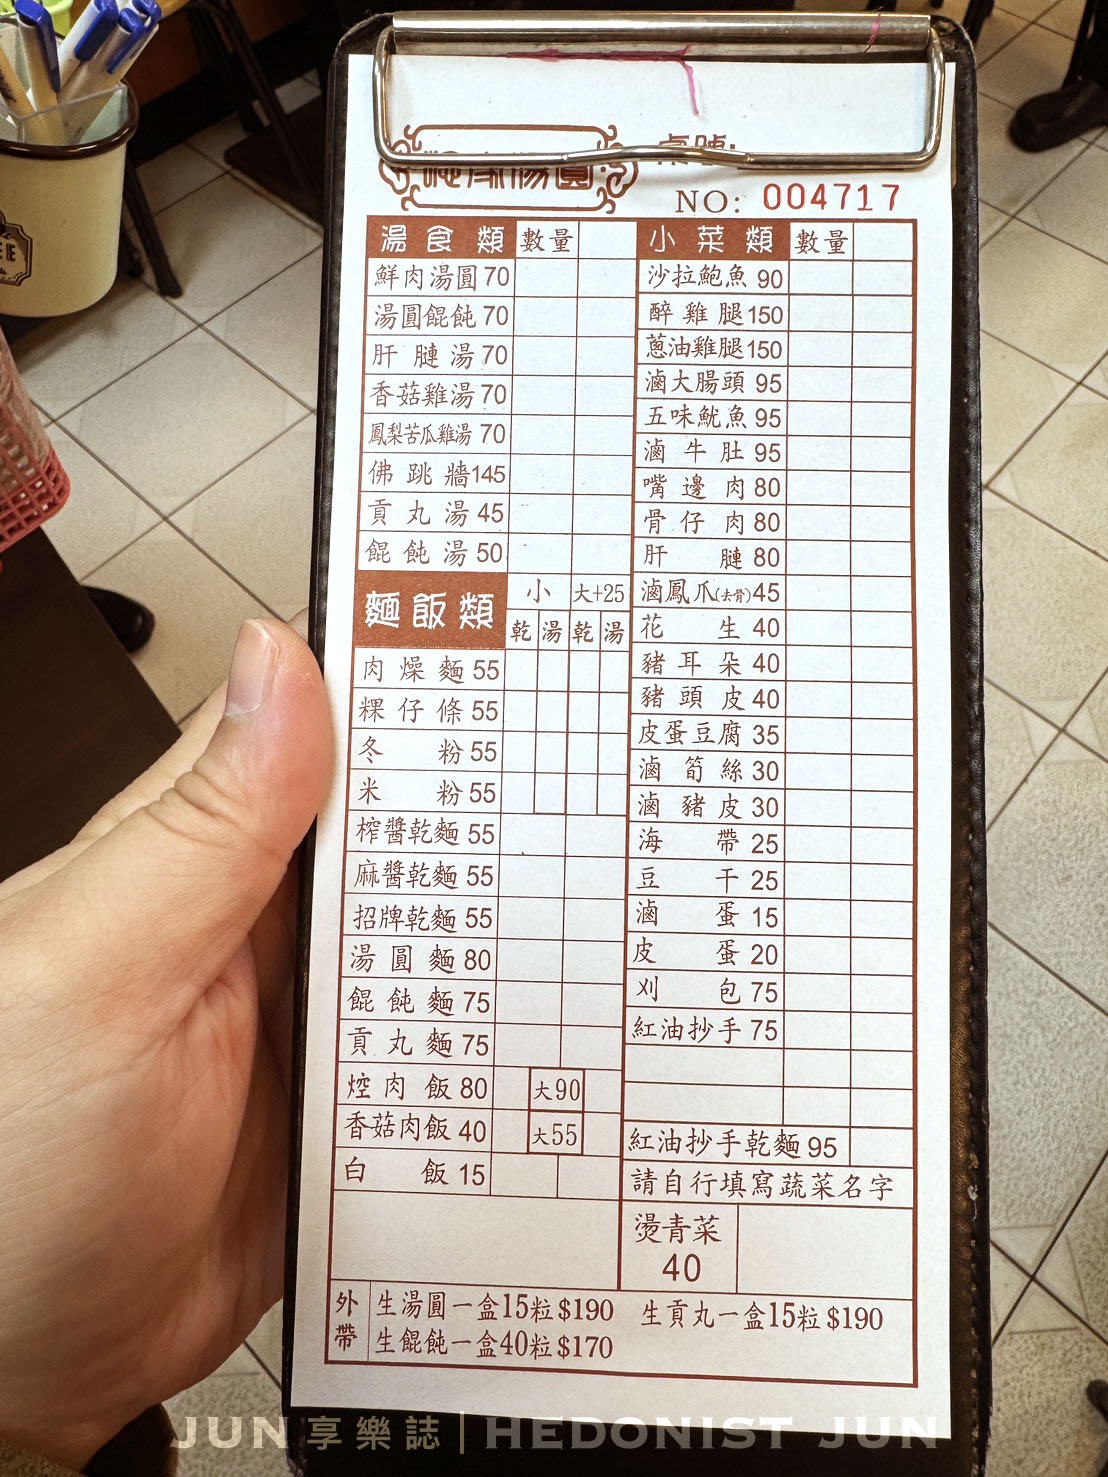 NO: 004717
湯食類 數量
鮮肉湯圓 70
湯圓餛飩 70
肝腱湯 70
香菇雞湯 70
鳳梨苦瓜雞湯 70
佛跳牆 145
貢丸湯 45
餛飩湯 50
麵飯類 小 大+25
乾 湯 乾 湯
肉燥麵 55
粿仔條 55
冬粉 55
米粉 55
榨醬乾麵 55
麻醬乾麵 55
招牌乾麵 55
湯圓麵 80
餛飩麵 75
貢丸麵 75
焢肉飯 80 大90
香菇肉飯 40 大55
白飯 15
小菜類 數量
沙拉鮑魚 90
醉雞腿 150
蔥油雞腿 150
滷大腸頭 95
五味魷魚 95
滷牛肚 95
嘴邊肉 80
骨仔肉 80
肝腱 80
滷鳳爪(去骨) 45
花生 40
豬耳朵 40
豬頭皮 40
皮蛋豆腐 35
滷筍絲 30
滷豬皮 30
海帶 25
豆干 25
滷蛋 15
皮蛋 20
刈包 75
紅油抄手 75
紅油抄手乾麵 95
請自行填寫蔬菜名字
燙青菜
40
外帶
生湯圓一盒15粒$190 生貢丸一盒15粒$190
生餛飩一盒40粒$170
JUN享樂誌|HEDONIST JUN